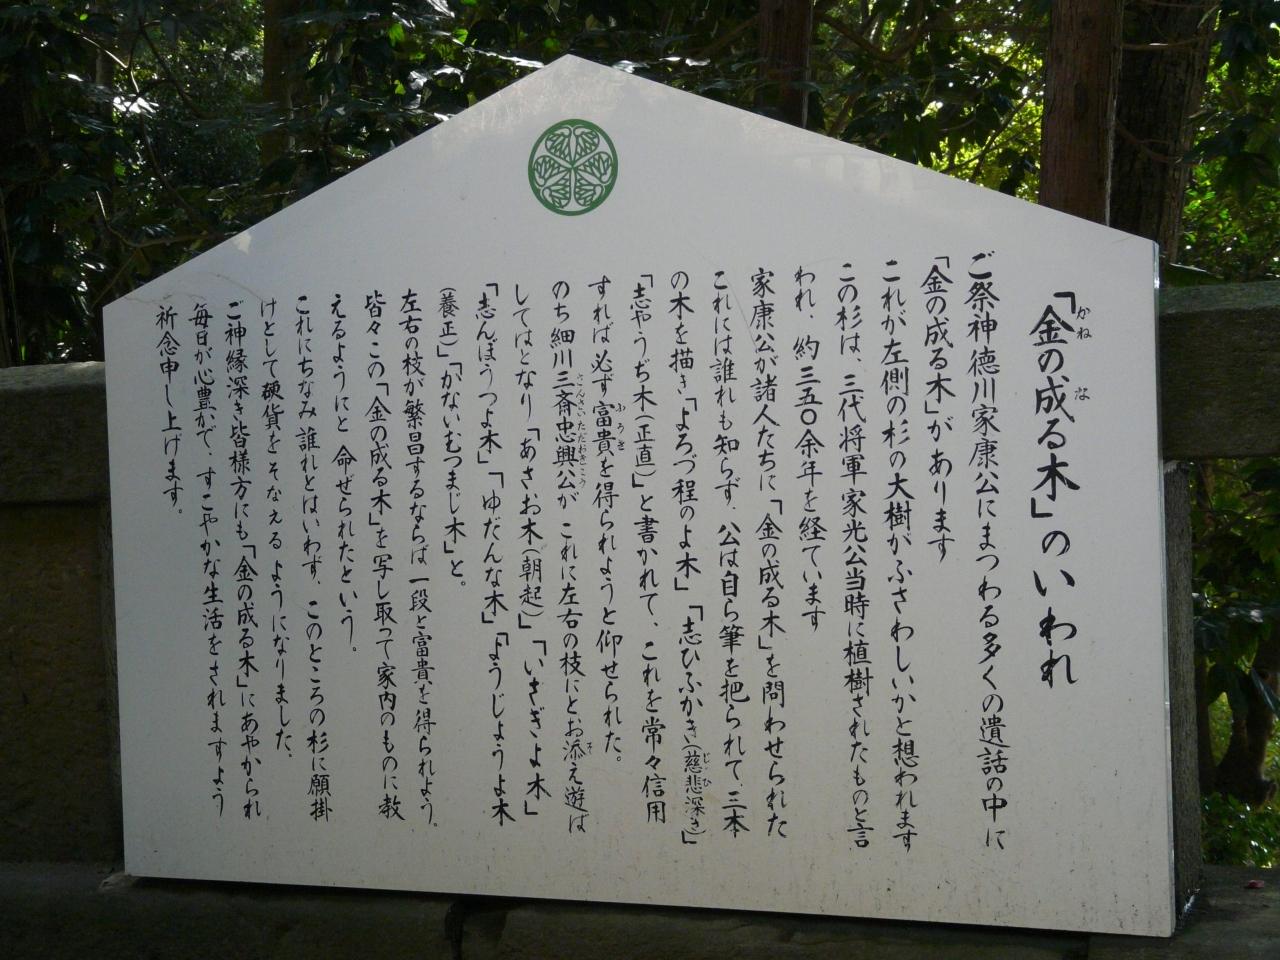 「金の成る木」のいわれ
ご祭神徳川家康公にまつわる多くの遺話の中に
「金の成る木」があります
これが左側の杉の大樹がふさわしいかと想われます
この杉は、三代将軍家光公当時に植樹されたものと言
われ、約三五〇余年を経ています
家康公が諸人たちに「金の成る木」を問わせられた
これには誰れも知らず、公は自ら筆を把られて、三本
の木を描き「よろづ程のよ木」「志ひふかき(慈悲深き)」
「志やうぢ木(正直)」と書かれて、これを常々信用
すれば必ず富貴を得られようと仰せられた。
のち細川三斎忠興公が これに左右の枝にとお添え遊ば
してはとなり「あさお木(朝起)」「いさぎよ木」
「志んぼうつよ木」「ゆだんな木」「ようじようよ木
(養正)」「かないむつまじ木」と。
左右の枝が繁昌するならば 一段と富貴を得られよう。
皆々この「金の成る木」を写し取って家内のものに教
えるようにと 命ぜられたという。
これにちなみ誰れとはいわず、このところの杉に願掛
けとして硬貨をそなえる ようになりました、
ご神縁深き皆様方にも「金の成る木」にあやかられ
毎日が心豊かで、すこやかな生活をされますよう
祈念申し上げます。